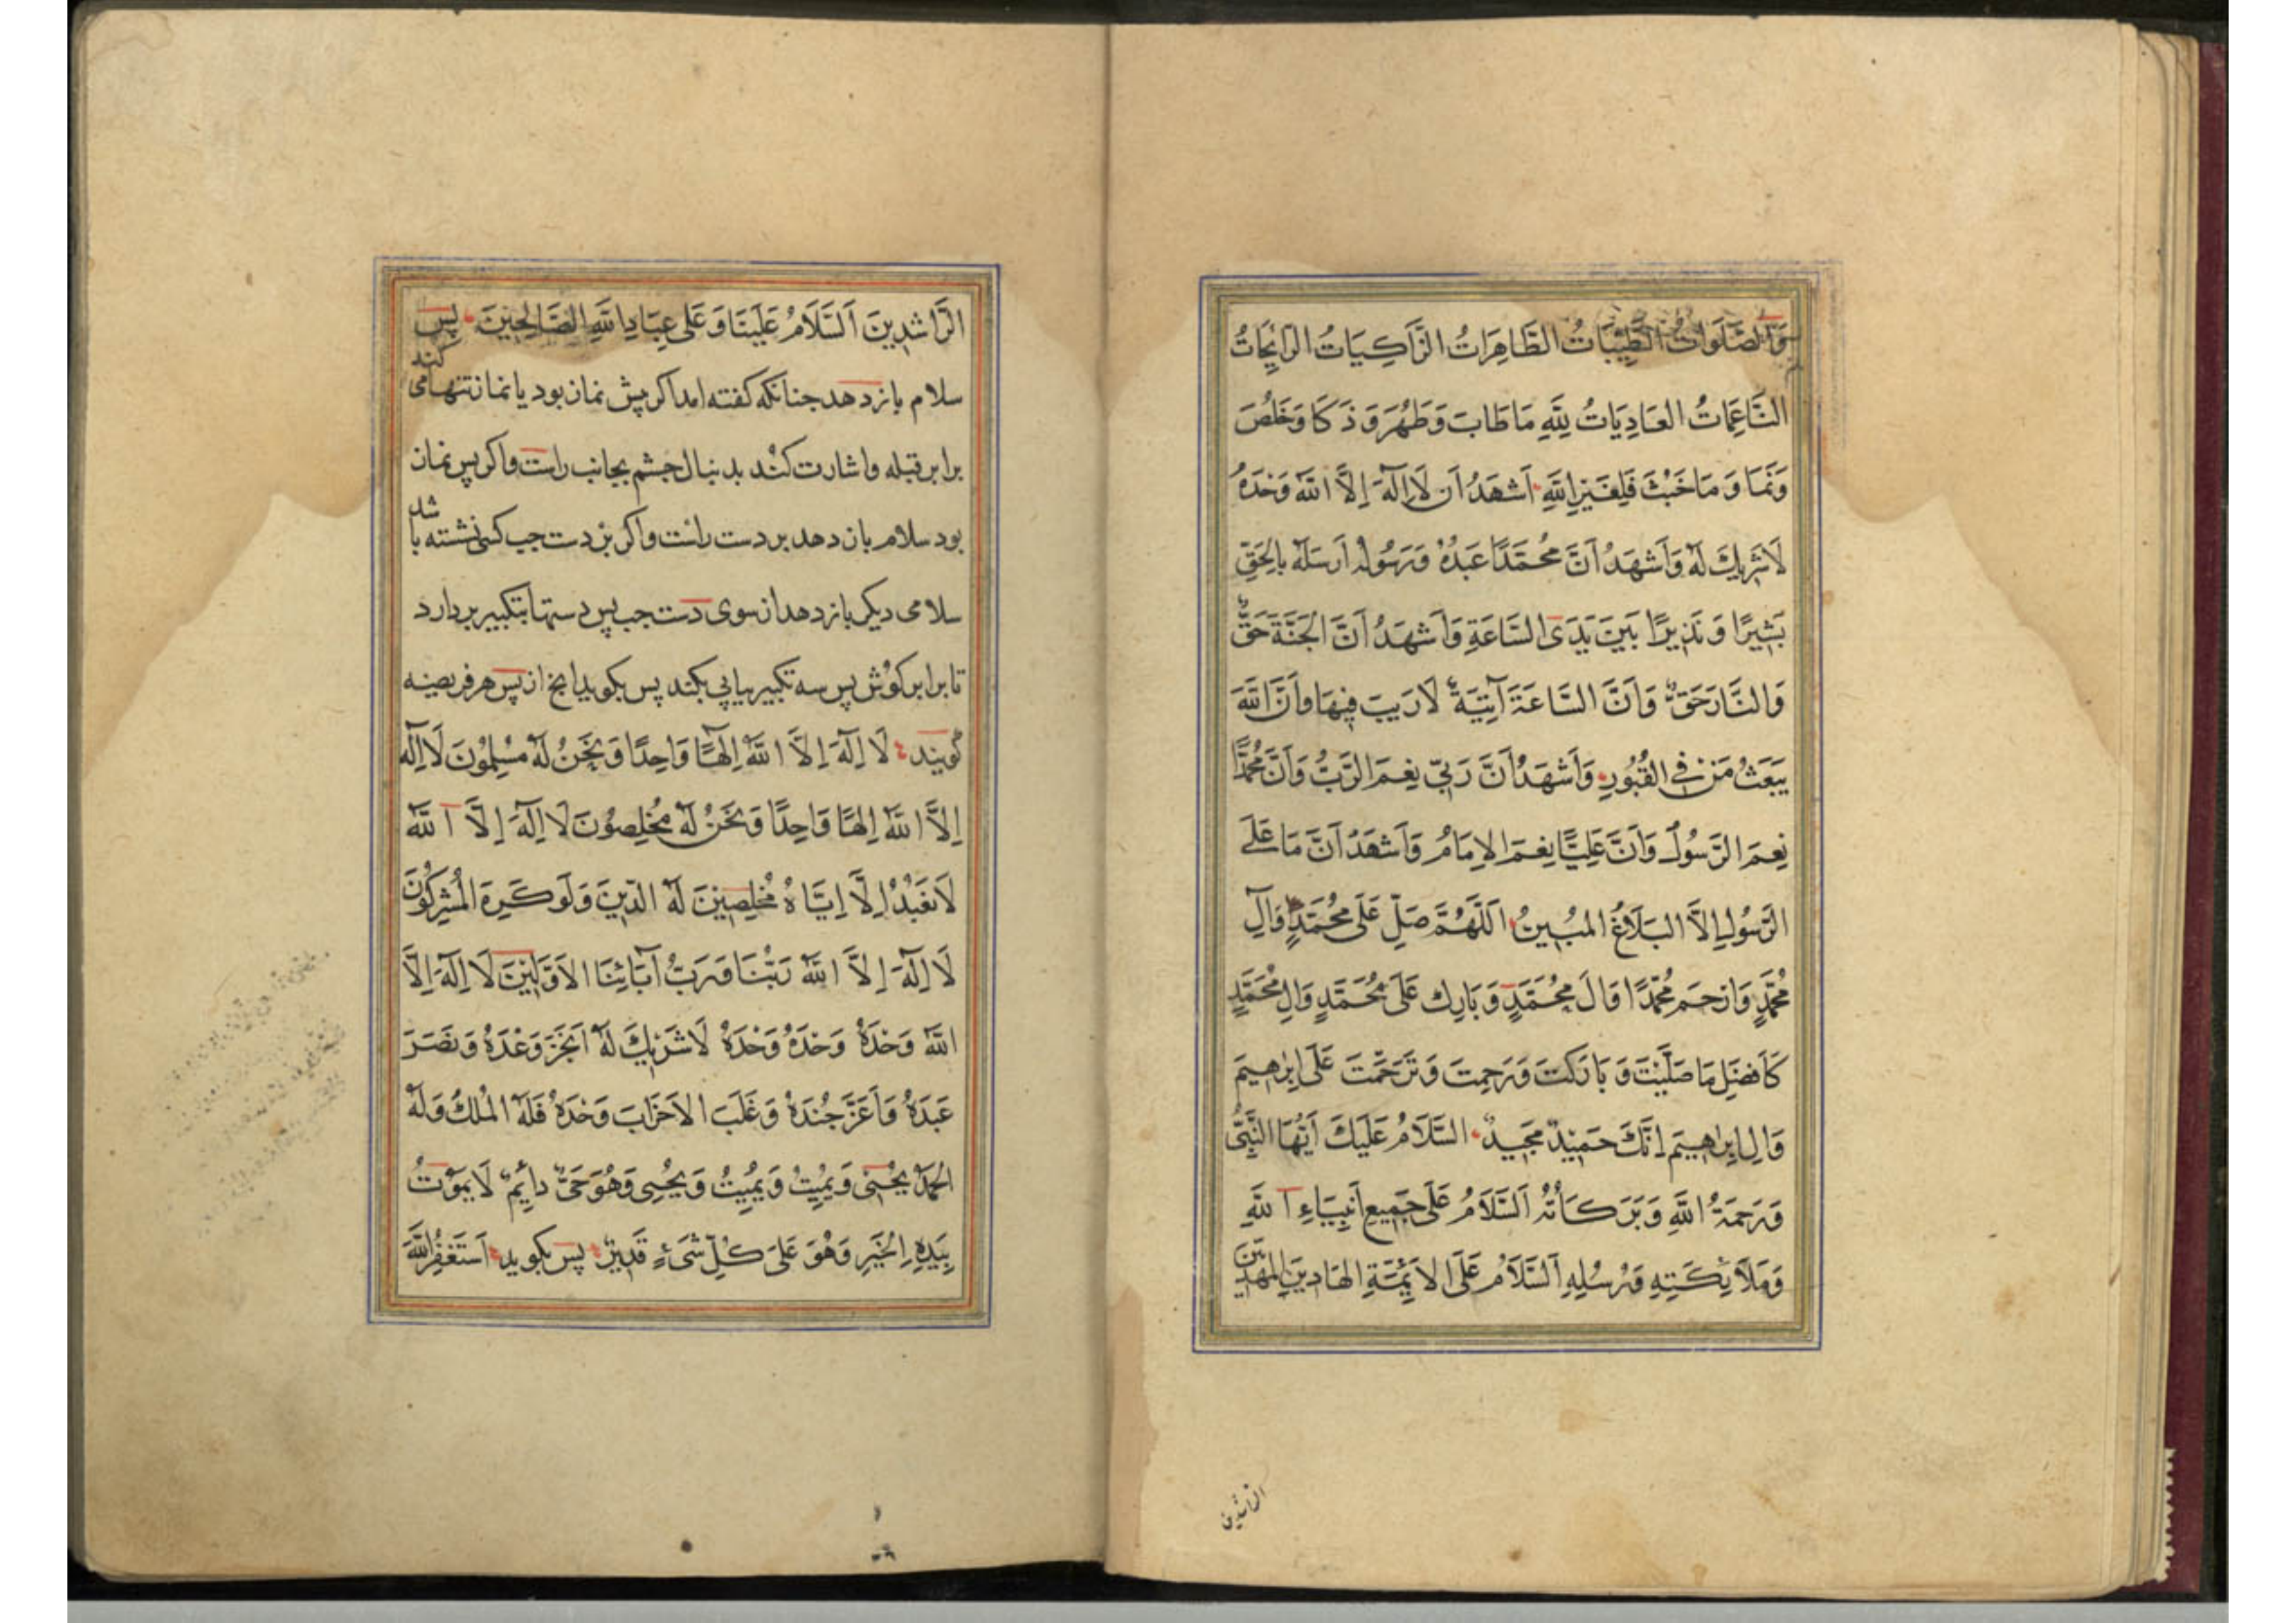 وَالصَّلَوَاتُ الطَّيِّبَاتُ الطَّاهِرَاتُ الزَّاكِيَاتُ الرَّايِحَاتُ
النَّاعِمَاتُ العَادِيَاتُ لِلَّهِ مَا طَابَ وَطَهُرَ وَذَكَا وَخَلُصَ
وَنَمَا وَمَا خَبُثَ فَلِغَيْرِ اللَّهِ اَشْهَدُ اَن لَا اِلَهَ اِلَّا اللَّهُ وَحْدَهُ
لَا شَرِيكَ لَهُ وَاَشْهَدُ اَنَّ مُحَمَّدًا عَبْدُهُ وَرَسُولُهُ اَرْسَلَهُ بِالحَقِّ
بَشِيرًا وَنَذِيرًا بَيْنَ يَدَىِ السَّاعَةِ وَاَشْهَدُ اَنَّ الجَنَّةَ حَقٌّ
وَالنَّارَ حَقٌّ وَاَنَّ السَّاعَةَ آتِيَةٌ لَا رَيبَ فِيهَا وَاَنَّ اللَّهَ
يَبعَثُ مَن فِى القُبُورِ وَاَشْهَدُ اَنَّ رَبِّى نِعمَ الرَّبُّ وَاَنَّ مُحَمَّدًا
نِعمَ الرَّسُولُ وَاَنَّ عَلِيًّا نِعمَ الاِمَامُ وَاَشْهَدُ اَنَّ مَا عَلَى
الرَّسُولِ اِلَّا البَلَاغُ المُبِينُ اَللَّهُمَّ صَلِّ عَلَى مُحَمَّدٍ وَآلِ
مُحَمَّدٍ وَارْحَم مُحَمَّدًا وَالَ مُحَمَّدٍ وَبَارِك عَلَى مُحَمَّدٍ وَالِ مُحَمَّدٍ
كَاَفضَلِ مَا صَلَّيْتَ وَبَارَكتَ وَرَحِمتَ وَتَرَحَّمْتَ عَلَى اِبرٰهِيمَ
وَالِ اِبرٰهِيمَ اِنَّكَ حَمِيْدٌ مَجِيدٌ السَّلَامُ عَلَيكَ اَيُّهَا النَّبِىُّ
وَرَحمَةُ اللَّهِ وَبَرَكَاتُهُ اَلسَّلَامُ عَلَى جَمِيعِ اَنبِيَاءِ اللَّهِ
وَمَلَائِكَتِهِ وَرُسُلِهِ اَلسَّلَامُ عَلَى الاَئِمَّةِ الهَادِينَ المَهدِيِّينَ
الراشدين
الرَّاشِدِينَ اَلسَّلَامُ عَلَيْنَا وَعَلَى عِبَادِ اللَّهِ الصَّالِحِيْنَ پس
سلام باز دهد جنانكه كفته امد اكر پيش نماز بود يا نماز تنها مى كند
برابر قبله واشارت كند بدنبال جشم بجانب راست واكر پس نماز
بود سلام باز دهد بر دست راست واكر بر دست جب كسى نشسته باشد
سلامى ديكر باز دهد از سوى دست جب پس دستها بتكبير بردارد
تا برابر كوش پس سه تكبير پياپى بكند پس بكويد انج از پس هر فريضه
كويند لَا اِلَهَ اِلَّا اللَّهُ اِلٰهًا وَاحِدًا وَنَحْنُ لَهُ مُسْلِمُوْنَ لَا اِلَهَ
اِلَّا اللَّهُ اِلٰهًا وَاحِدًا وَنَحْنُ لَهُ مُخْلِصُونَ لَا اِلَهَ اِلَّا اللَّهُ
لَا نَعْبُدُ اِلَّا اِيَّاهُ مُخْلِصِيْنَ لَهُ الدِّينَ وَلَو كَرِهَ المُشْرِكُونَ
لَا اِلَهَ اِلَّا اللَّهُ رَبُّنَا وَرَبُّ آبَائِنَا الاَوَّلِيْنَ لَا اِلَهَ اِلَّا
اللَّهُ وَحْدَهُ وَحْدَهُ وَحْدَهُ لَا شَرِيْكَ لَهُ اَنجَزَ وَعْدَهُ وَنَصَرَ
عَبدَهُ وَاَعَزَّ جُندَهُ وَغَلَبَ الاَحزَابَ وَحْدَهُ فَلَهُ المُلكُ وَلَهُ
الحَمدُ يُحْيِى وَيُمِيْتُ وَيُمِيتُ وَيُحْيِى وَهُوَ حَىٌّ دَائِمٌ لَا يَمُوْتُ
بِيَدِهِ الخَيْرِ وَهُوَ عَلَى كُلِّ شَىْءٍ قَدِيْرٌ پس بكويد اَستَغفِرُ اللَّهَ